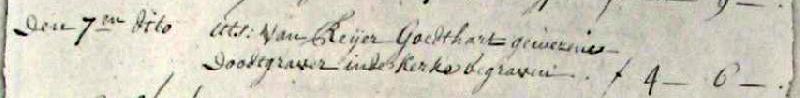 Den 7en dito van Reijer Goedthart geweesene
Doodtgraver inde Kerke begraven. f 4 — 6 —.